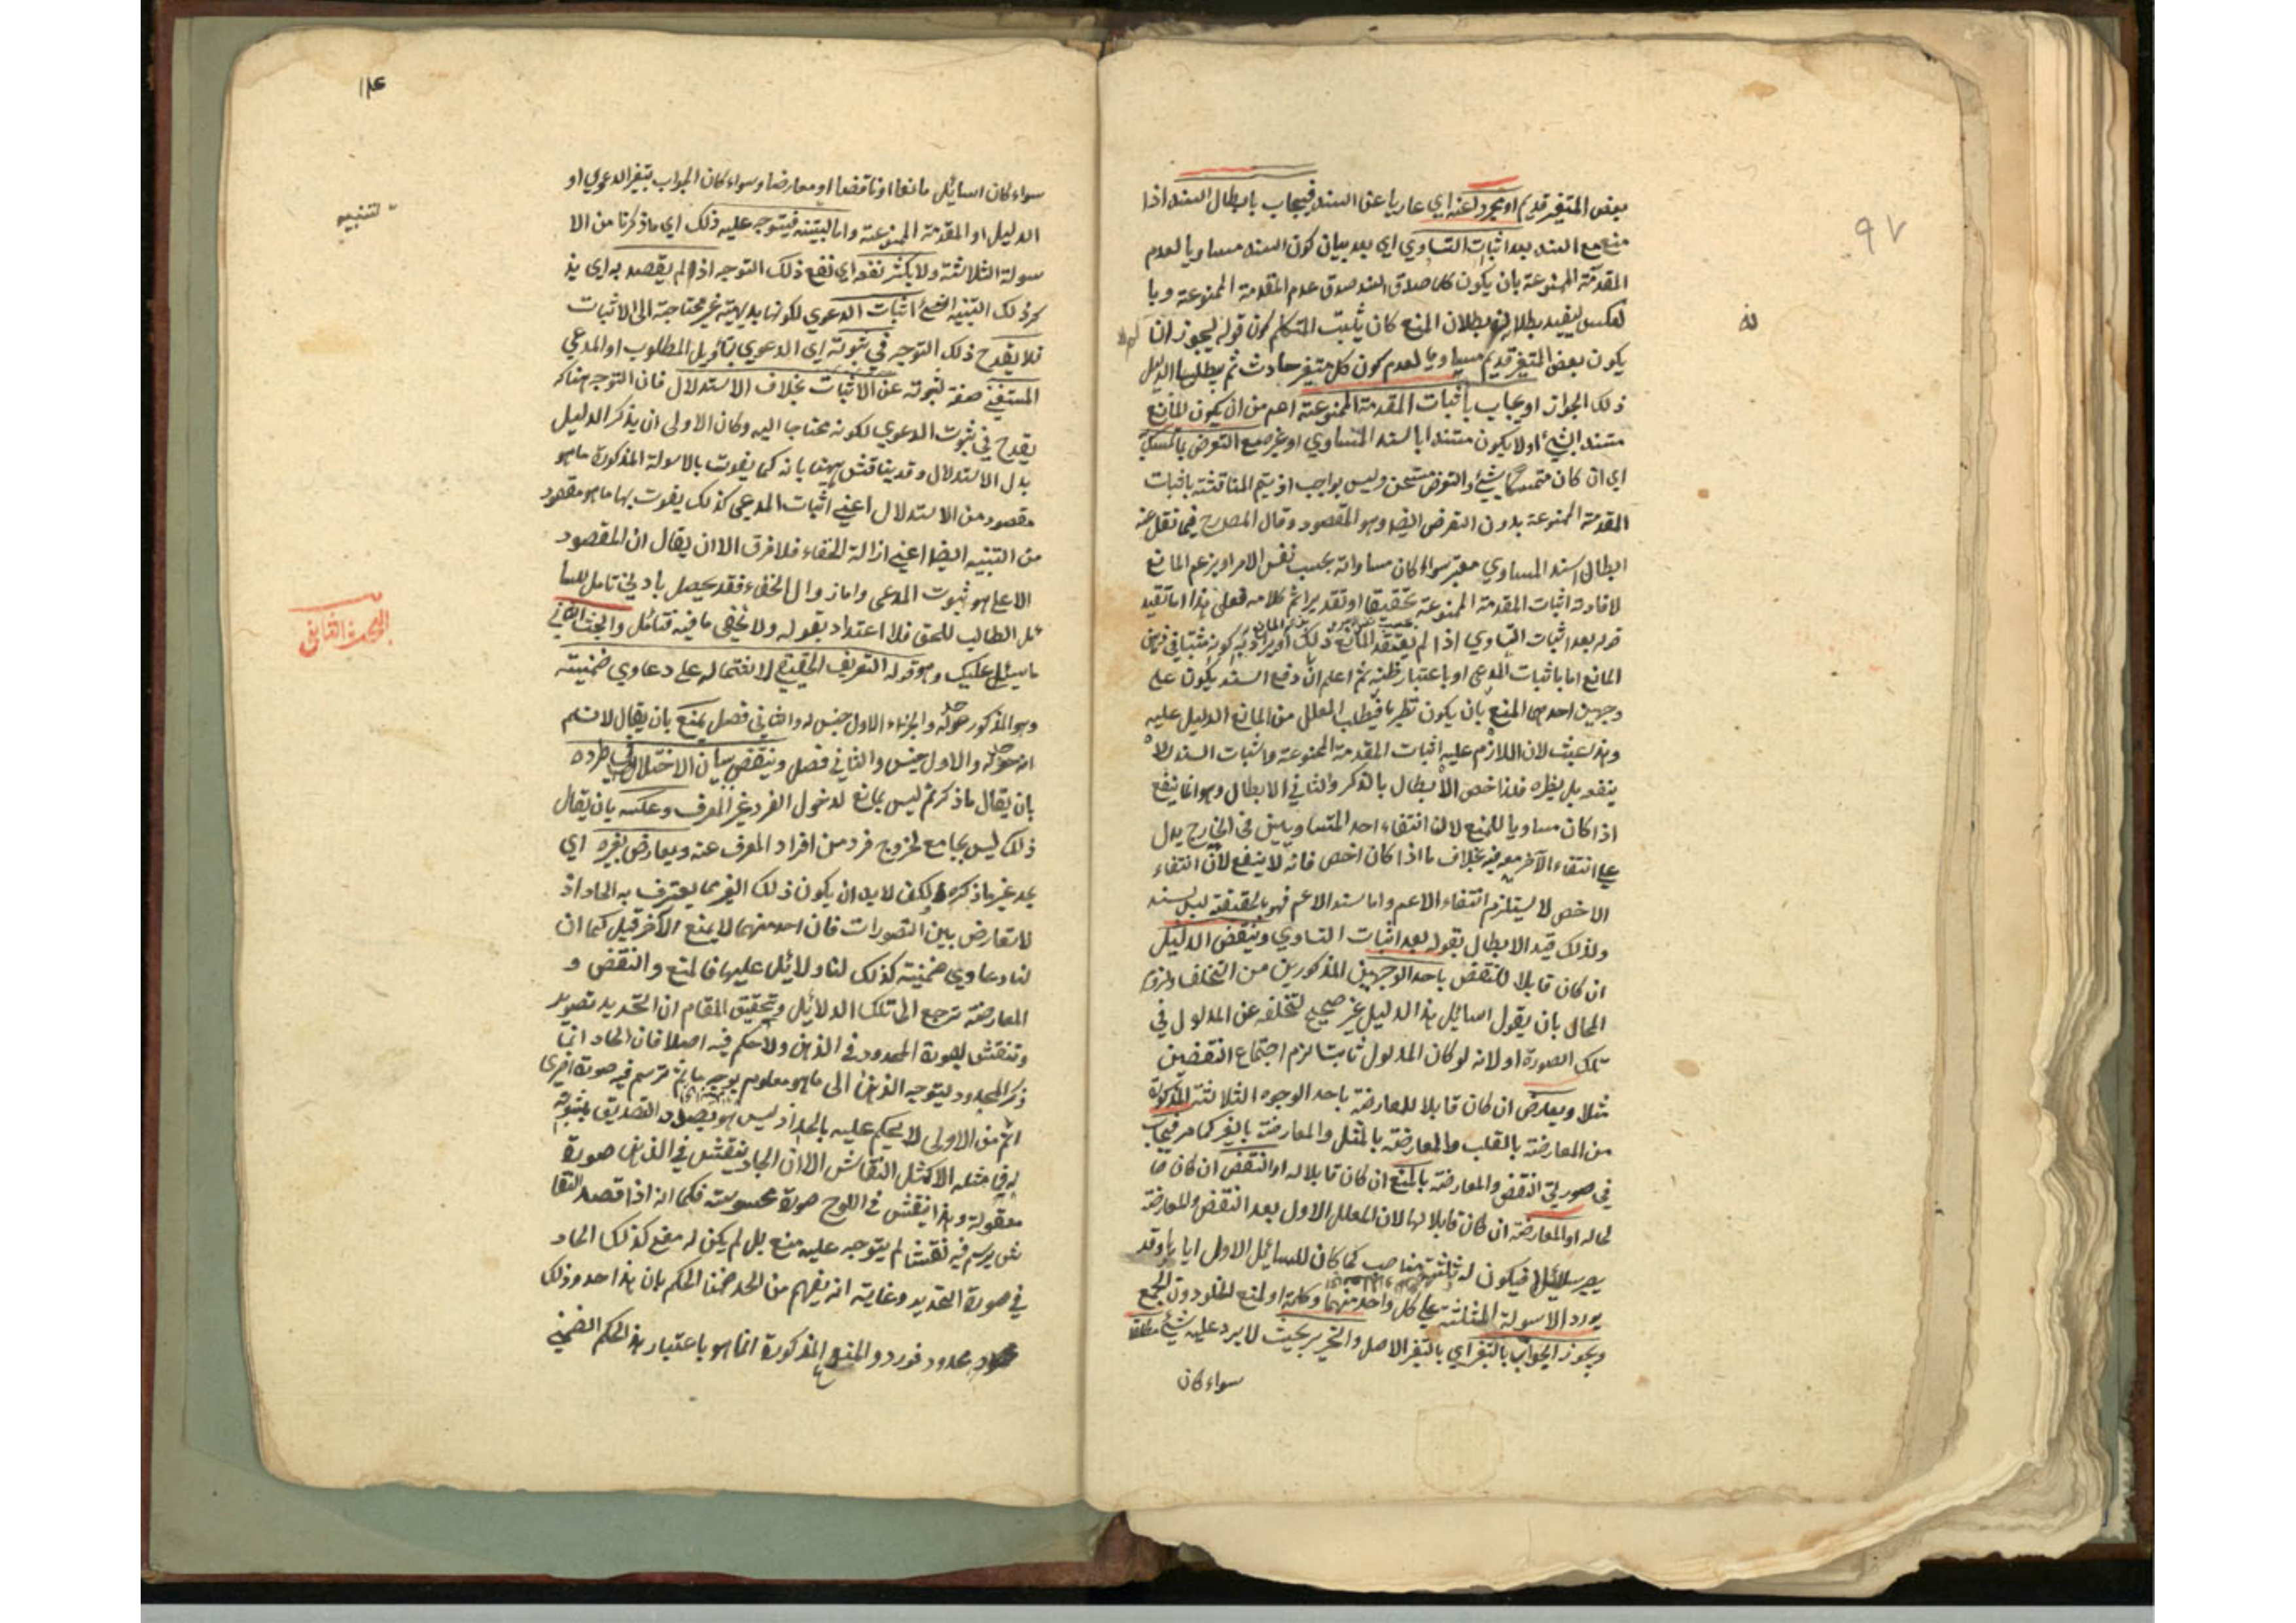 ٩٧
بعض المتغير قديم او مجردا عنه اي عاريا عن السند فيجاب بابطال السند اذا
منع مع السند بعد اثبات التساوي اي بعد بيان كون السند مساويا لعدم
المقدمة الممنوعة بان يكون كلما صدق السند صدق عدم المقدمة الممنوعة وبا
لعكس ليفيد بطلانه بطلان المنع كان يثبت المتكلم كون قوله لم لا يجوز ان
يكون بعض المتغير قديم مساويا لعدم كون كل متغير حادث ثم يبطل بالدليل
ذلك الجواز او يجاب باثبات المقدمة الممنوعة اهم من ان يكون المانع
مستند الشيء او لا يكون مستندا بالسند المساوي او غيره مع التعرض بالتمسك
اي ان كان متمسكا بشيء والتعرض مستحسن وليس بواجب اذ يتم المناقشة باثبات
المقدمة الممنوعة بدون التعرض ايضا وهو المقصود وقال المصرح فيما نقل عنه
ابطال السند المساوي معتبر سواء كان مساواته بحسب نفس الامر او بزعم المانع
لافادته اثبات المقدمة الممنوعة تحقيقا او تقديرا ثم كلامه فعلى هذا اما تقييد
قوله بعد اثبات التساوي اذا لم يعتقد المانع ذلك او يراد به كونه مثبتا في ذهن
المانع اما باثبات المدعي او باعتبار ظنه ثم اعلم ان دفع السند يكون على
وجهين احدهما المنع بان يكون نظريا فيطلب المعلل من المانع الدليل عليه
وهذا عبث لان اللازم عليه اثبات المقدمة الممنوعة واثبات السند لا
ينفعه بل يضره فلذا خص الابطال بالذكر والثاني الابطال وهو انما ينفع
اذا كان مساويا للمنع لان انتفاء احد المتساويين في الخارج يدل
على انتفاء الآخر معه فيه بخلاف ما اذا كان اخص فانه لا ينفع لان انتفاء
الاخص لا يستلزم انتفاء الاعم واما سند الاعم فهو بالحقيقة ليس بسند
ولذلك قيد الابطال بقوله بعد اثبات التساوي وينقض الدليل
ان كان قابلا للنقض باحد الوجهين المذكورين من التخلف ولزوم
المحال بان يقول السائل هذا الدليل غير صحيح لتخلفه عن المدلول في
تلك الصورة او لانه لو كان المدلول ثابتا لزم اجتماع النقضين
مثلا ويعارض ان كان قابلا للمعارضة باحد الوجوه الثلاثة المذكورة
من المعارضة بالقلب والمعارضة بالمثل والمعارضة بالغير كما مر فيجاب
في صورتي النقض والمعارضة بالمنع ان كان قابلا له او النقض ان كان صا
لحا له او المعارضة ان كان قابلا لها لان المعلل الاول بعد النقض والمعارضة
يصير سائلا فيكون له ثلثة مناصب كما كان للسائل الاول ايا يا وقد
يورد الاسولة الثلاثة على كل واحد منهما وكلمة او لمنع الخلو دون الجمع
ويجوز الجواب بالتغير اي بالتغير الاصل والتحرير بحيث لا يرد عليه شيء مطلقا
سواء كان
سواء كان السائل مانعا او ناقضا او معارضا وسواء كان الجواب بتغير الدعوي او
الدليل او المقدمة الممنوعة واما التنبيه فيتوجه عليه ذلك اي ما ذكرنا من الا
سولة الثلاثة ولا يكثر نفعه اي نفع ذلك التوجه اذ لم يقصد به اي بذ
كر ذلك التنبيه اثبات الدعوي لكونها بديهية غير محتاجة الى الاثبات
فلا يقدح ذلك التوجه في ثبوته اي الدعوي بتأويل المطلوب او المدعي
المستغني صفة لثبوته عن الاثبات بخلاف الاستدلال فان التوجه هناك
يقدح في ثبوت الدعوي لكونه محتاجا اليه وكان الاولى ان يذكر الدليل
بدل الاستدلال وقد يناقش ههنا بانه كما يفوت بالاسولة المذكورة ما هو
مقصود من الاستدلال اعني اثبات المدعي كذلك يفوت بها ما هو مقصود
من التنبيه ايضا اعني ازالة الخفاء فلا فرق الا ان يقال ان المقصود
الاعلى هو ثبوت المدعي واما زوال الخفاء فقد يحصل بادني تامل للسا
ئل الطالب للحق فلا اعتداد بقوله ولا يخفى ما فيه فتأمل والبحث الثاني
ما سيتلى عليك وهو قوله التعريف الحقيقي لاشتماله على دعاوي ضمنية
وهو المذكور حد له والجزء الاول جنس له والثاني فصل يمنع بان يقال لا نسلم
انه حد له والاول جنس والثاني فصل وينقض ببيان الاختلال في طرده
بان يقال ما ذكرتم ليس بمانع لدخول الفرد غير المعرف وعكسه بان يقال
ذلك ليس بجامع لخروج فرد من افراد المعرف عنه ويعارض بغيره اي
بحد غير ما ذكره لكن لا بد ان يكون ذلك الغير مما يعترف به الحاد اذ
لا تعارض بين التصورات فان احد منهما لا يمنع الآخر قيل كما ان
لنا دعاوي ضمنية كذلك لنا دلائل عليها فالمنع والنقض و
المعارضة ترجع الى تلك الدلائل وتحقيق المقام ان التحديد تصوير
وتنقش لصورة المحدود في الذهن ولا حكم فيه اصلا فان الحاد انما
ذكر المحدود ليتوجه الذهن الى ما هو معلوم بوجه ما ثم ترسم فيه صورة اخرى
اتم من الاولى لا يحكم عليه بالحد اذ ليس هو بصدد التصديق بثبوته
له فما مثله الا كمثل النقاش الا ان الحاد ينقش في الذهن صورة
معقولة وهذا ينقش في اللوح صورة محسوسة فكما انه اذا قصد النقا
ش يرسم فيه نقشا لم يتوجه عليه منع بل لم يكن له معنى كذلك الحاد
في صورة التحديد وغايته انه يفهم من الحد ضمنا الحكم بان هذا حد وذلك
محدود فورد والمنع المذكورة انما هو باعتبار هذا الحكم الضمني
التنبيه
البحث الثاني